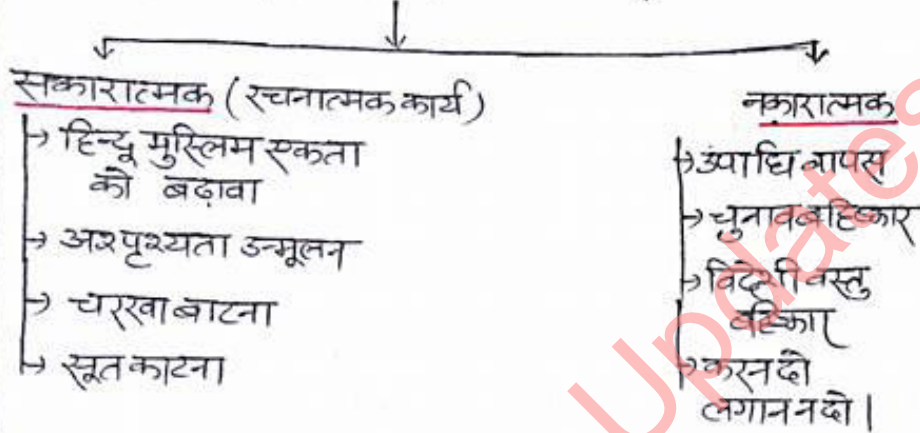 सकारात्मक (रचनात्मक कार्य)
→ हिन्दू मुस्लिम एकता
को बढ़ावा
→ अस्पृश्यता उन्मूलन
→ चरखा बाटना
→ सूत काटना
नकारात्मक
→ उपाधि वापस
→ चुनाव बहिष्कार
→ विदेशी वस्तु
बहिष्कार
→ कर न दो
लगान न दो।
Updates